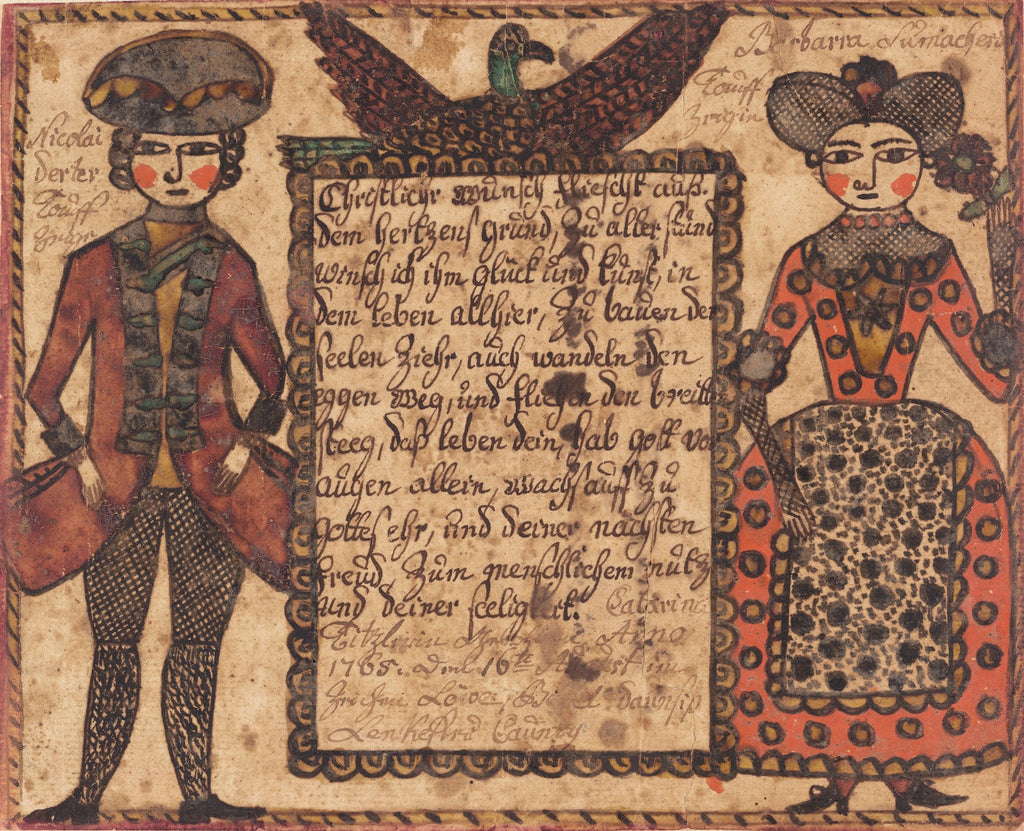 Nicolai
Derter
Tauff
Zeige
Barbarra Sumachern
Tauff
Zeigin
Christlichr wunsch fliescht auß
dem hertzens grund, Zu aller stund
winsch ich ihm glück und kunst, in
dem leben allhier, Zu bauen der
seelen Ziehr, auch wandeln den
eggen weg, und fliehen den breitten
steeg, daß leben dein, hab gott vor
augen allein, wachs auff Zu
gottes ehr, und deiner nachsten
freud, Zum menschlichem nutz
und deiner seeligkeit. Catarina
Anno
1765. den 16te August im
Zeichen Löwe, daunsip
Lenkester Caunty